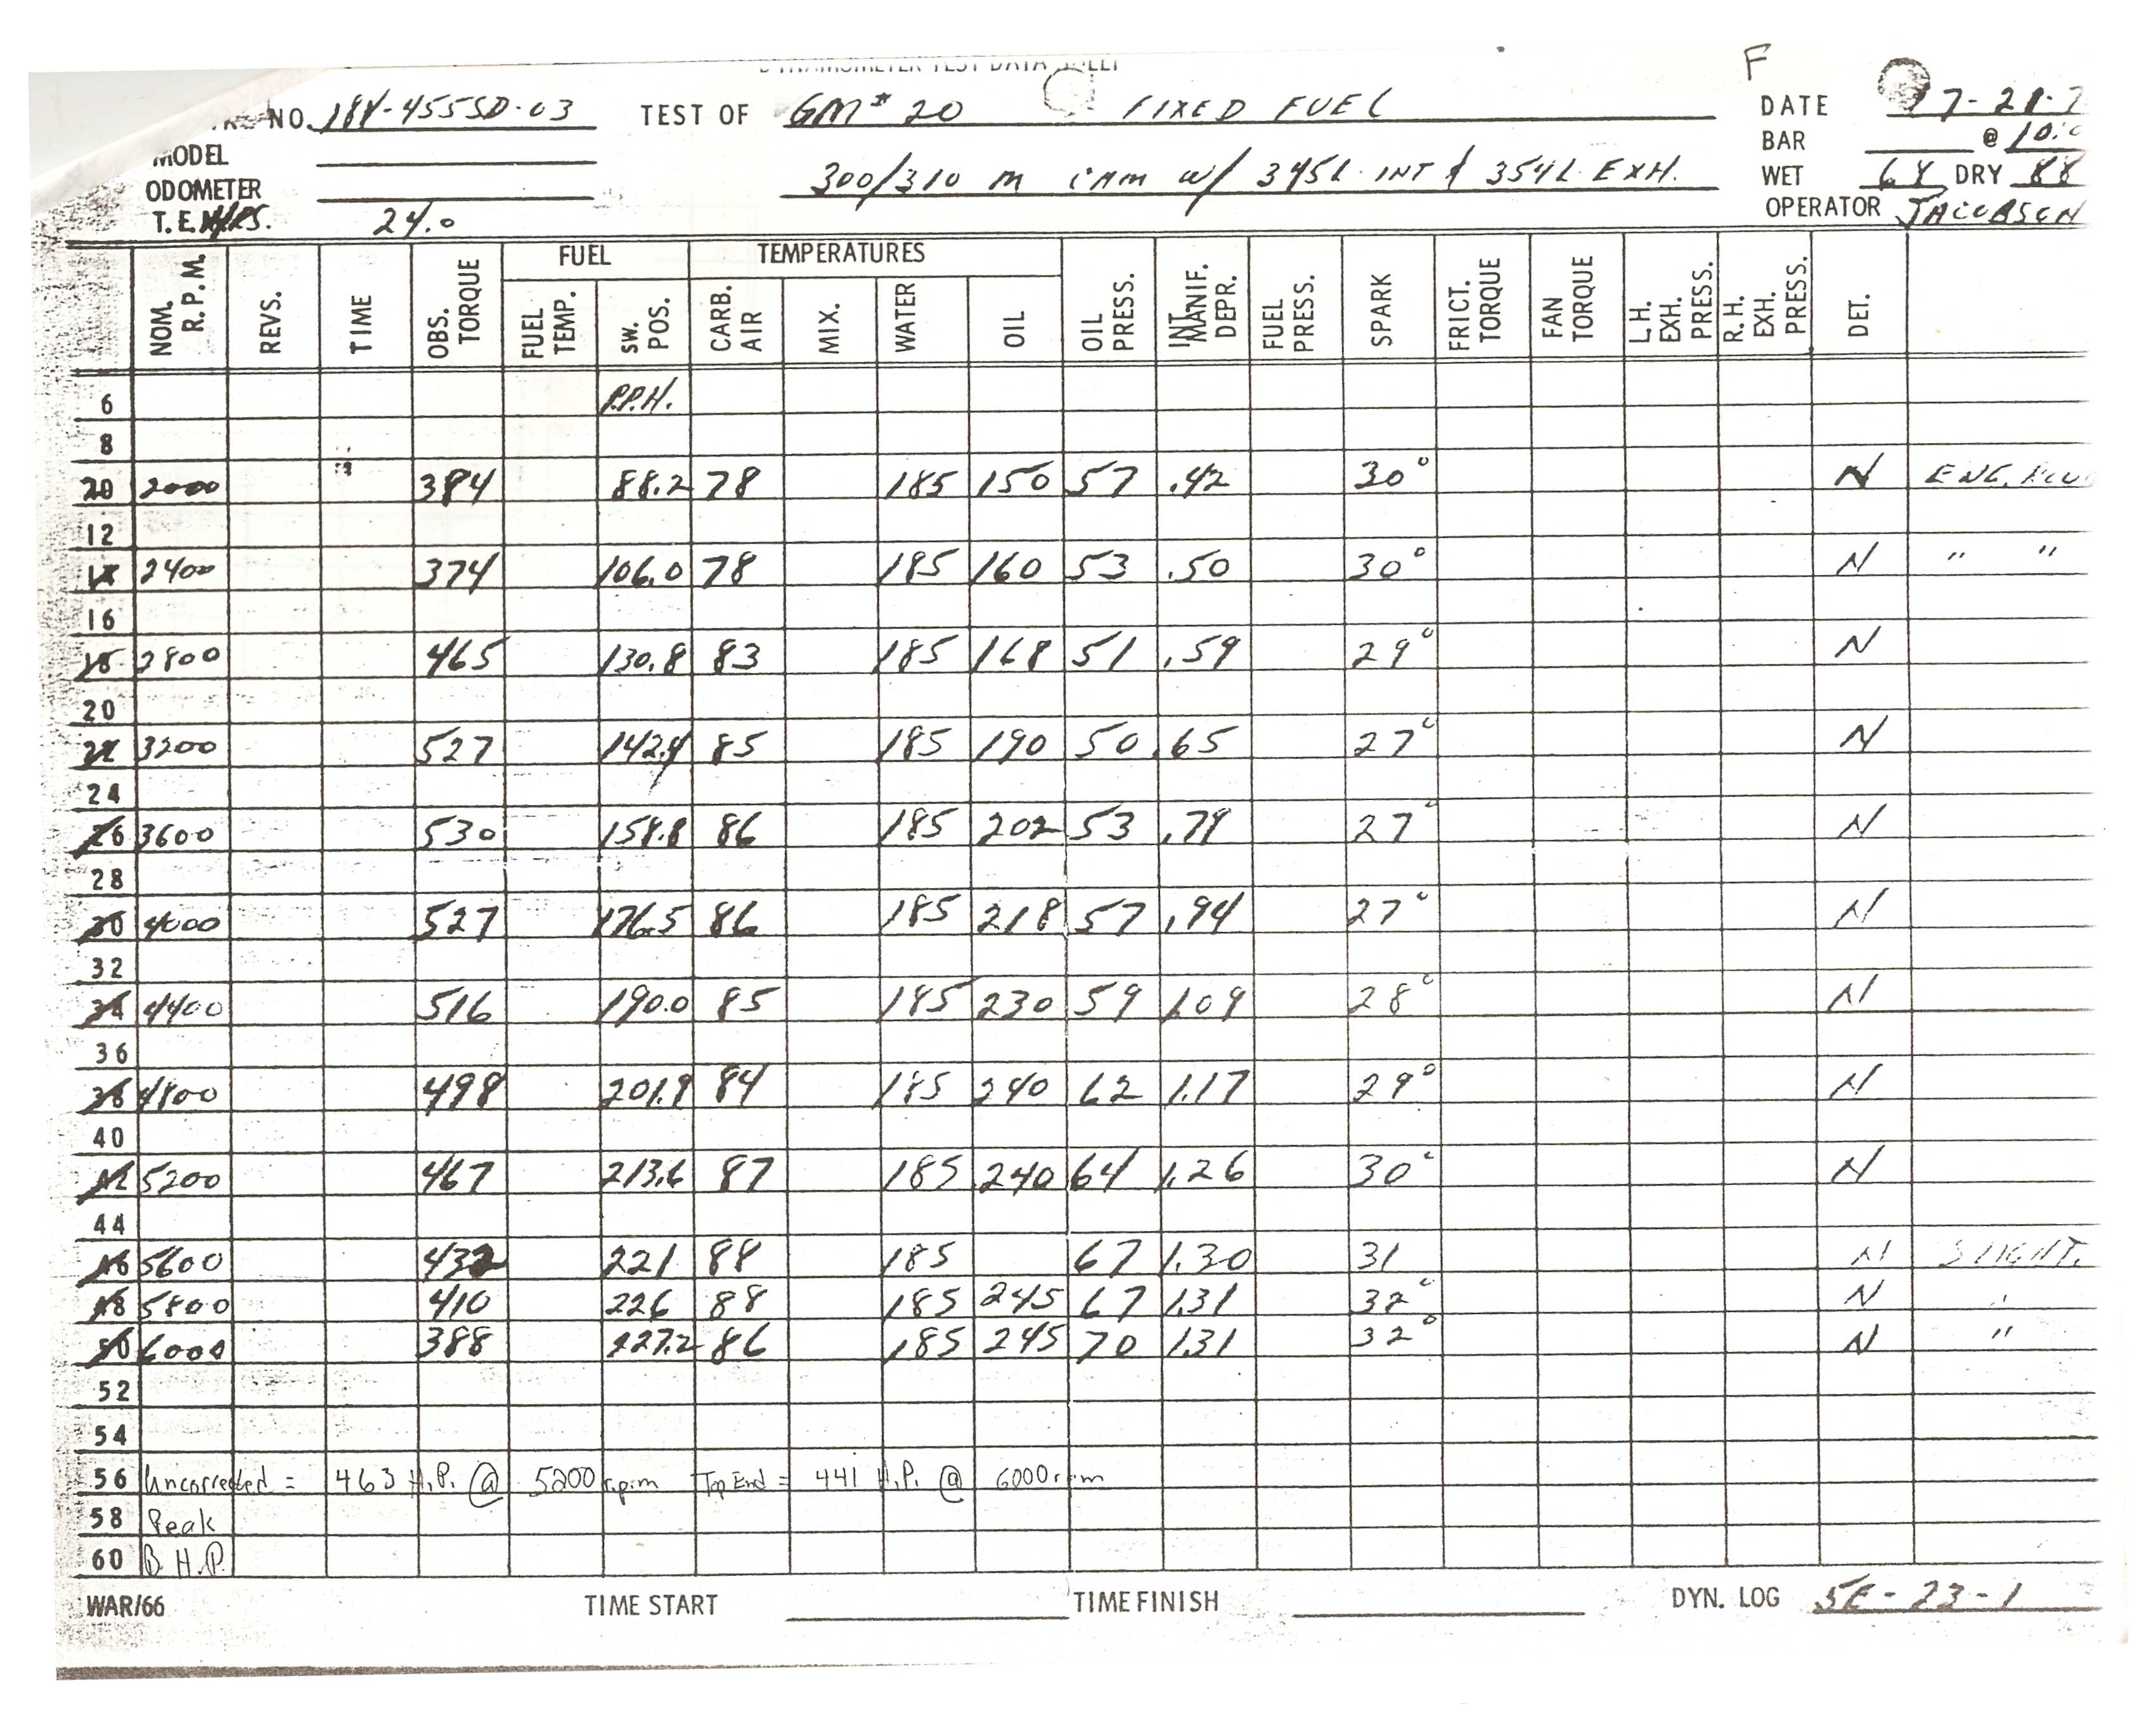 F
NO. 184-455SD-03 TEST OF GM# 20 FIXED FUEL DATE 7-21-7
MODEL BAR @ 10:0
ODOMETER 300/310 M CAM W/ 345L INT & 354L EXH. WET 68 DRY 88
T.E. HRS. 24.0 OPERATOR JACOBSEN
FUEL TEMPERATURES
NOM. R.P.M. REVS. TIME OBS. TORQUE FUEL TEMP. SW. POS. CARB. AIR MIX. WATER OIL OIL PRESS. INT MANIF. DEPR. FUEL PRESS. SPARK FRICT. TORQUE FAN TORQUE L.H. EXH. PRESS. R.H. EXH. PRESS. DET.
6 P.P.H.
8
2000 384 88.2 78 185 150 57 .42 30° N ENG.
12
2400 374 106.0 78 185 160 53 .50 30° N " "
16
2800 465 130.8 83 185 168 51 .59 29° N
20
3200 527 142.4 85 185 190 50 .65 27° N
24
3600 530 158.8 86 185 202 53 .79 27° N
28
4000 527 176.5 86 185 218 57 .94 27° N
32
4400 516 190.0 85 185 230 59 1.09 28° N
36
4800 498 201.9 84 185 240 62 1.17 29° N
40
5200 467 213.6 87 185 240 64 1.26 30° N
44
5600 432 221 88 185 67 1.30 31 N SLIGHT.
5800 410 226 88 185 245 67 1.31 32° N
6000 388 227.2 86 185 245 70 1.31 32° N "
52
54
56 Uncorrected = 463 H.P. @ 5200 r.p.m Top End = 441 H.P. @ 6000 r.p.m
58 Peak
60 B.H.P.
WAR/66 TIME START TIME FINISH DYN. LOG 5E-23-1